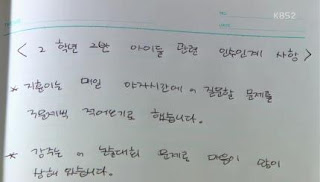 KBS2
< 2학년 2반 아이들 관련 인수인계 사항 >
* 지훈이는 매일 야자시간에 m 질문할 문제를
적어오기로 했습니다.
* 강주는 m 논술대회 문제로 마음이 많이
상해 있습니다.